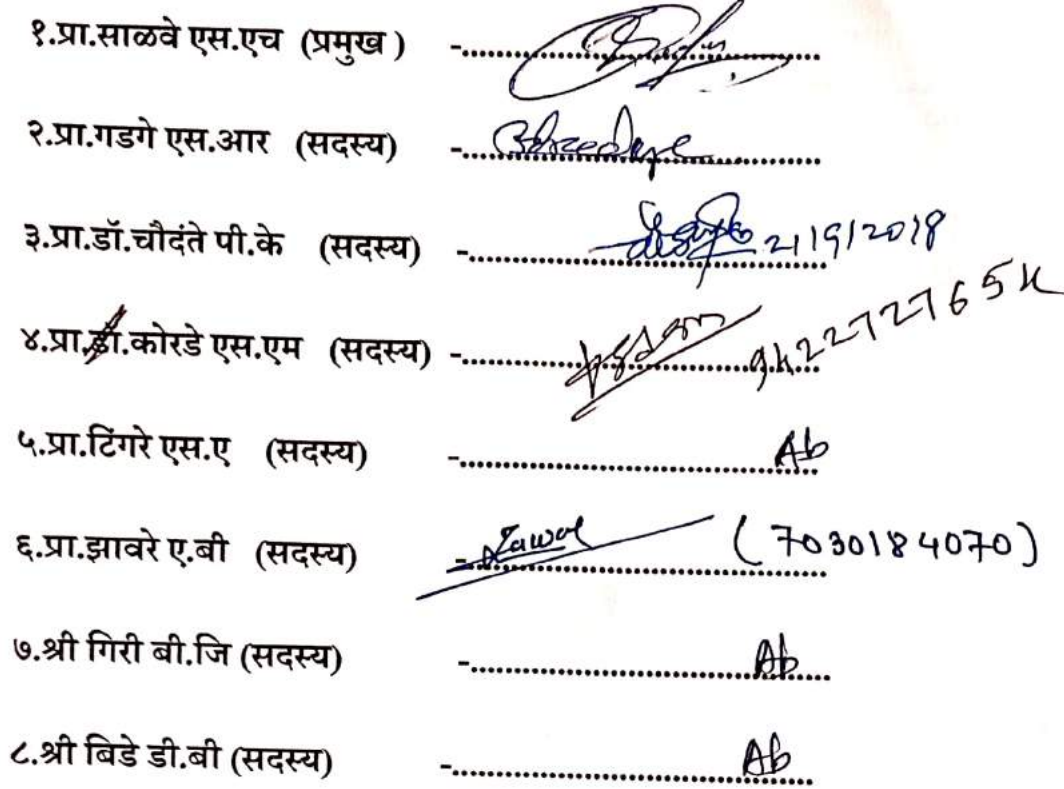 १.प्रा.साळवे एस.एच (प्रमुख ) -....................................
२.प्रा.गडगे एस.आर (सदस्य) -....................................
३.प्रा.डॉ.चौदंते पी.के (सदस्य) -.................................... 21912018
४.प्रा.डॉ.कोरडे एस.एम (सदस्य) -.................................... 9422727654
५.प्रा.टिंगरे एस.ए (सदस्य) -.................................... Ab
६.प्रा.झावरे ए.बी (सदस्य) -.................................... (7030184070)
७.श्री गिरी बी.जि (सदस्य) -.................................... Ab
८.श्री बिडे डी.बी (सदस्य) -.................................... Ab